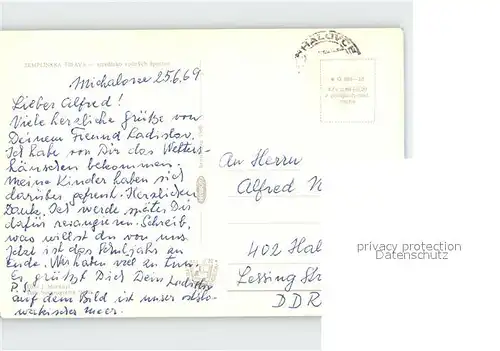 ZEMPLÍNSKA ŠÍRAVA –
HALOVCE
Michalovce 25.6.69
Lieber Alfred!
Viele herzliche Grüße von
Deinem Freund Ladislav.
Ich habe von Dir das Wetters-
häuschen bekommen.
Meine Kinder haben sich
darüber gefreut. Herzlichen
Dank. Ich werde später Dir
dafür revangieren. Schreib,
was willst du von uns.
Jetzt ist das Schuljahr an
Ende. Wir haben viel zu tun.
Es grüßt Dich Dein Ladislav
P.S.
auf dem Bild ist unser ostslo-
wakisches meer.
An Herrn
Alfred
402 Hal
Lessing Str
DDR
privacy protection
Datenschutz